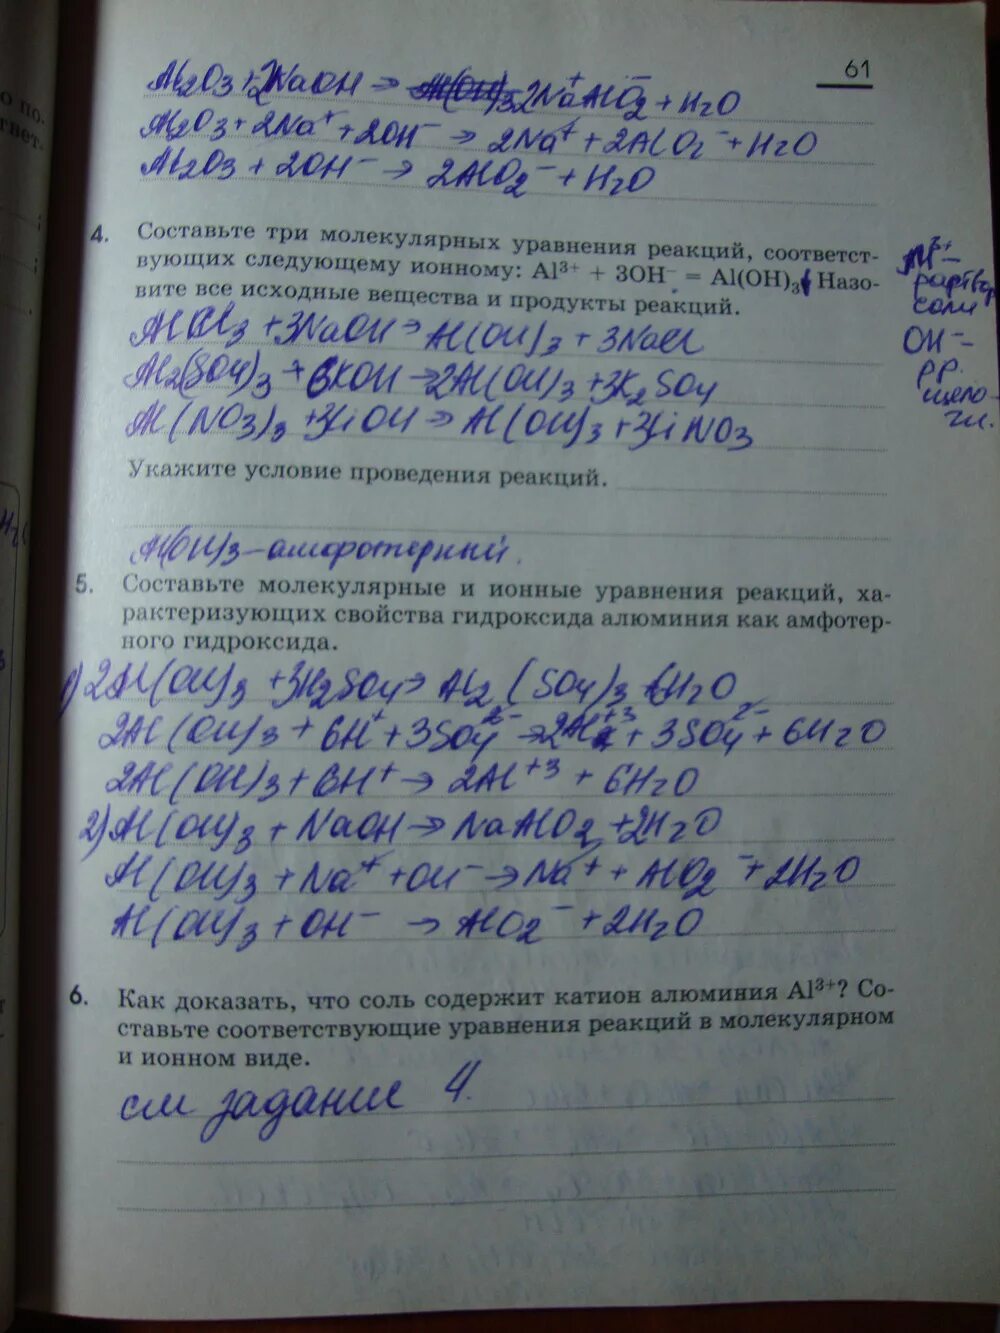 61
Al2O3 + 2NaOH → 2Na⁺AlO2⁻ + H2O
Al2O3 + 2Na⁺ + 2OH⁻ → 2Na⁺ + 2AlO2⁻ + H2O
Al2O3 + 2OH⁻ → 2AlO2⁻ + H2O
4. Составьте три молекулярных уравнения реакций, соответст-
вующих следующему ионному: Al³⁺ + 3OH⁻ = Al(OH)₃↓ Назо-
вите все исходные вещества и продукты реакций.
Al³⁺ -
раствор
соли
OH⁻ -
р.р.
щело-
чи.
AlCl3 + 3NaOH → Al(OH)3 + 3NaCl
Al2(SO4)3 + 6KOH → 2Al(OH)3 + 3K2SO4
Al(NO3)3 + 3LiOH → Al(OH)3 + 3LiNO3
Укажите условие проведения реакций.
Al(OH)3 - амфотерный.
5. Составьте молекулярные и ионные уравнения реакций, ха-
рактеризующих свойства гидроксида алюминия как амфотер-
ного гидроксида.
1) 2Al(OH)3 + 3H2SO4 → Al2(SO4)3 + 6H2O
2Al(OH)3 + 6H⁺ + 3SO4²⁻ → 2Al⁺³ + 3SO4²⁻ + 6H2O
2Al(OH)3 + 6H⁺ → 2Al⁺³ + 6H2O
2) Al(OH)3 + NaOH → NaAlO2 + 2H2O
Al(OH)3 + Na⁺ + OH⁻ → Na⁺ + AlO2⁻ + 2H2O
Al(OH)3 + OH⁻ → AlO2⁻ + 2H2O
6. Как доказать, что соль содержит катион алюминия Al³⁺? Со-
ставьте соответствующие уравнения реакций в молекулярном
и ионном виде.
см задание 4.